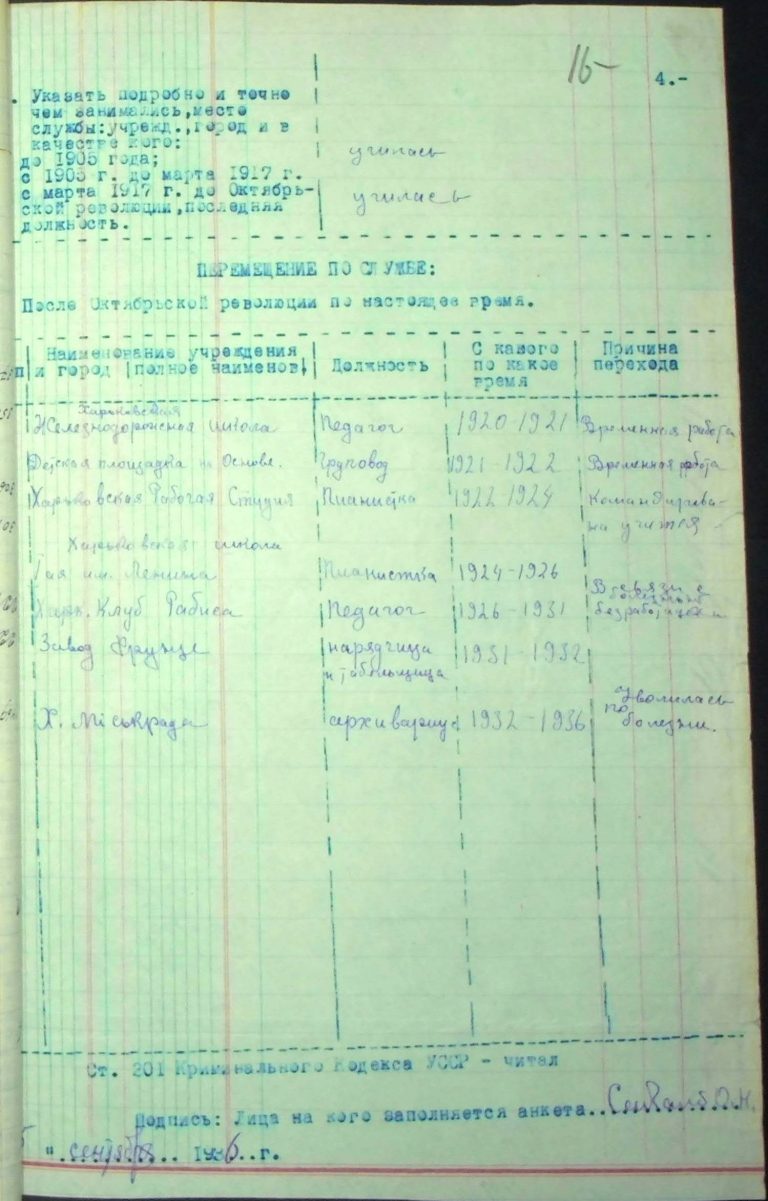 16
4.-
. Указать подробно и точно
чем занимались, место
службы: учрежд., город и в
качестве кого:
до 1905 года;
с 1905 г. до марта 1917 г. училась
с марта 1917 г. до Октябрь-
ской революции, последняя училась
должность.
ПЕРЕМЕЩЕНИЕ ПО СЛУЖБЕ:
После Октябрьской революции по настоящее время.
Наименование учреждения С какого Причина
п и город полное наименов. Должность по какое перехода
время
Харьковская
Железнодорожная школа Педагог 1920-1921 Временная работа
Детская площадка на Основе. Групповод 1921-1922 Временная работа
Харьковская Рабочая Студия Пианистка 1922-1924 Командирова-
на учится
Харьковская школа
им. Ленина Пианистка 1924-1926
В связи с
Харк. Клуб Рабиса Педагог 1926-1931 безработицей
Завод Фрунзе нарядчица 1931-1932
и табельщица
Уволилась
Х. Міськрада архивариус 1932-1936 по болезни.
Ст. 201 Криминального Кодекса УССР - читал
Подпись: Лица на кого заполняется анкета..
"..сентября.. 1936..г.